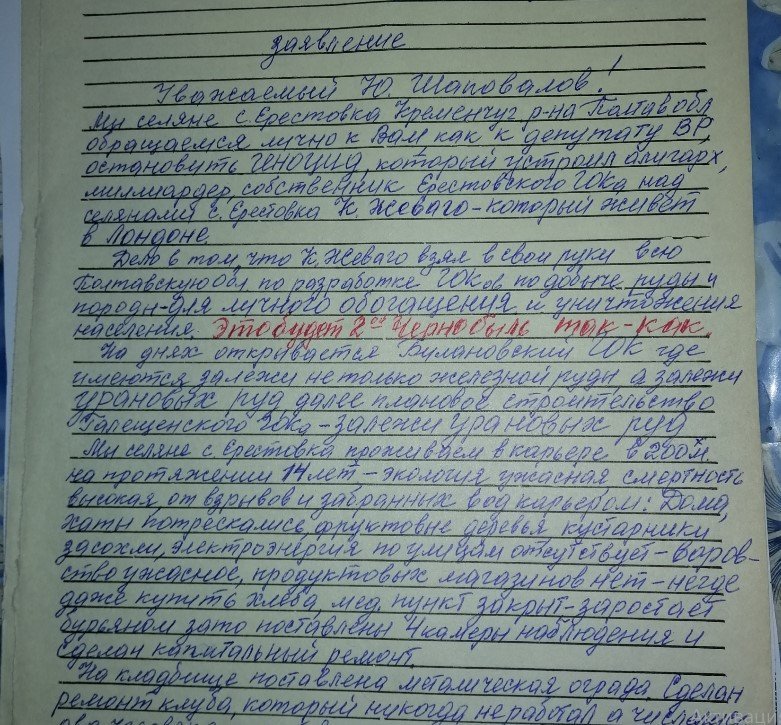 заявление
Уважаемый Ю. Шаповалов!
Мы селяне с. Ерестовка Кременчуг р-на Полтав обл
обращаемся лично к Вам как к депутату ВР
остановить геноцид, который устроил алигарх,
миллиардер, собственник Ерестовского ГОКа над
селянами с. Ерестовка К. Жеваго - который живёт
в Лондоне.
Дело в том, что К. Жеваго взял в свои руки всю
Полтавскую обл по разработке ГОКов по добыче руды и
породы - для личного обогащения и уничтожения
населения. Это будет 2ой Чернобыль так-как.
На днях открывается Булановский ГОК где
имеются залежи не только железной руды а залежи
урановых руд далее плановое строительство
Галещенского ГОКа - залежи урановых руд
Мы селяне с. Ерестовка проживаем в карьере в 200 м.
на протяжении 14 лет - экология ужасная смертность
высокая, от взрывов и забранных вод карьером: Дома,
хаты потрескались, фруктовые деревья кустарники
засохли, электроэнергия по улицам отсутствует - воров-
ство ужасное, продуктовых магазинов нет - негде
даже купить хлеба, мед. пункт закрыт - заростает
бурьяном зато поставлены 4 камеры наблюдения и
сделан капитальный ремонт.
На кладбище поставлена металическая ограда. Сделан
ремонт клуба, который никогда не работал а